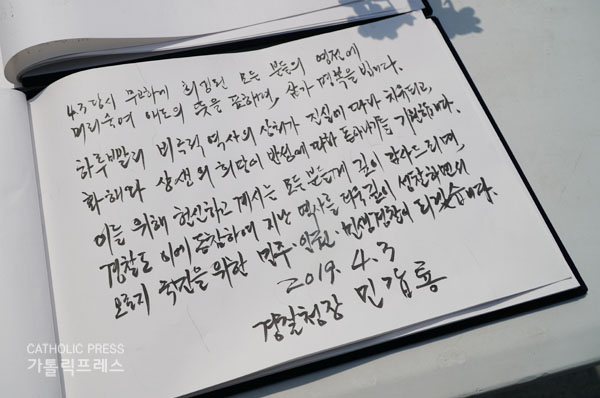 4.3 당시 무고하게 희생된 모든 분들의 영전에
머리숙여 애도의 뜻을 표하며, 삼가 명복을 빕니다.
하루빨리 비극적 역사의 상처가 진실에 따라 치유되고,
화해와 상생의 희망이 반연에 퍼져 돋아나기를 기원합니다.
이를 위해 헌신하고 계시는 모든 분들께 깊이 감사드리며,
경찰도 이에 동참하여 지난 역사를 더욱 깊이 성찰하면서
오로지 국민을 위한 민주·인권·민생경찰이 되겠습니다.
2019. 4. 3
경찰청장 민갑룡
CATHOLIC PRESS
가톨릭프레스